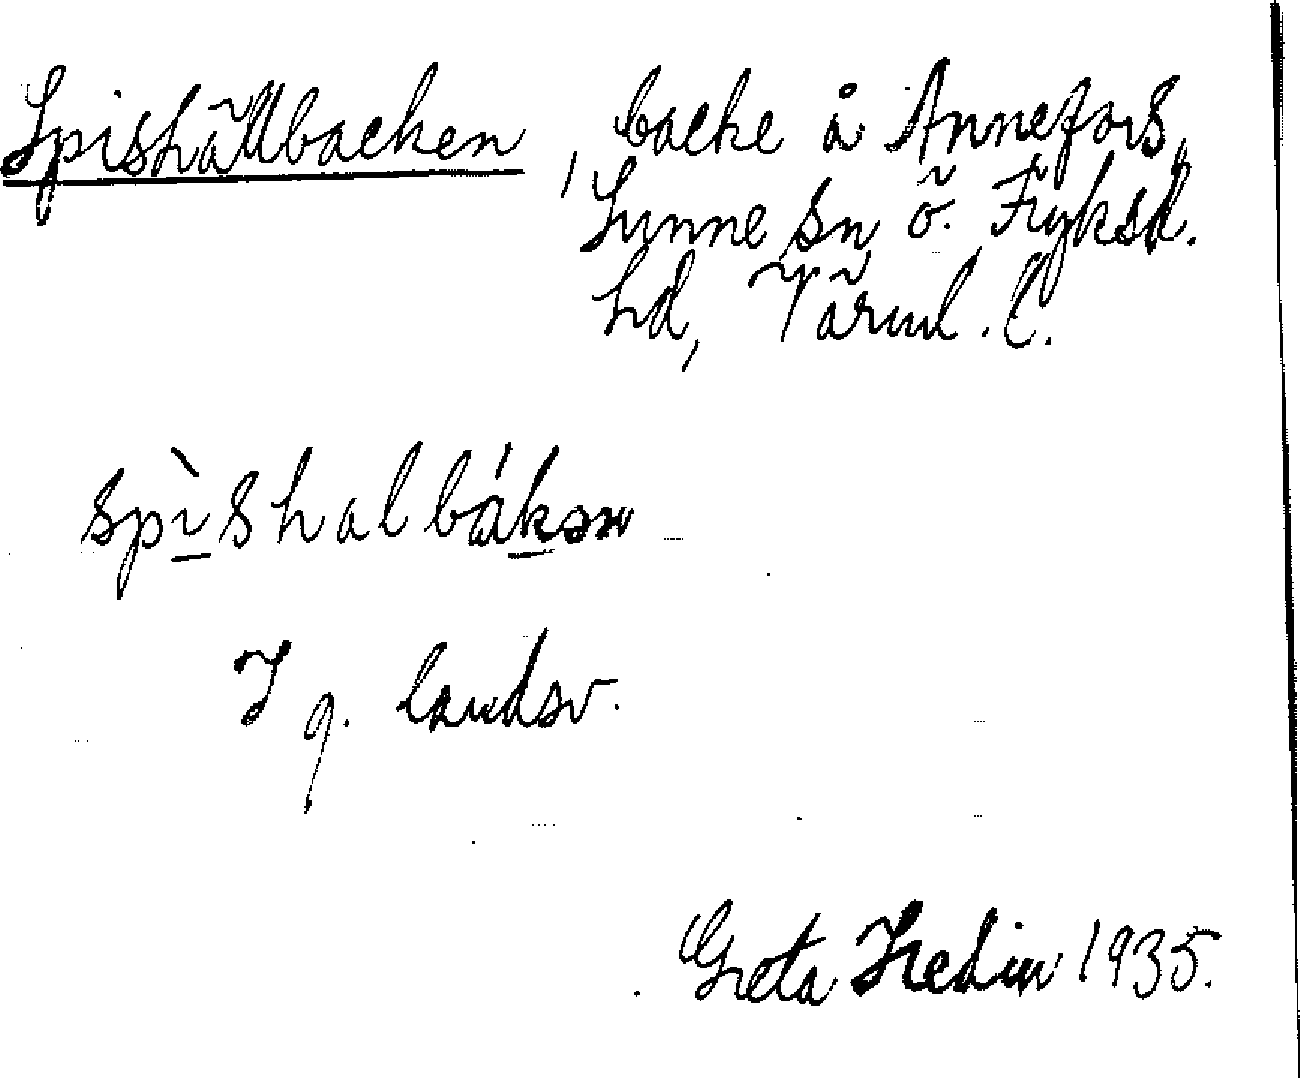 Spishällbacken, backe å Annefors,
Sunne sn Ö. Fryksd.
hd, Värml. l.
spì̠shalbák̠ən
I g. landsv.
Greta Hedin 1935.